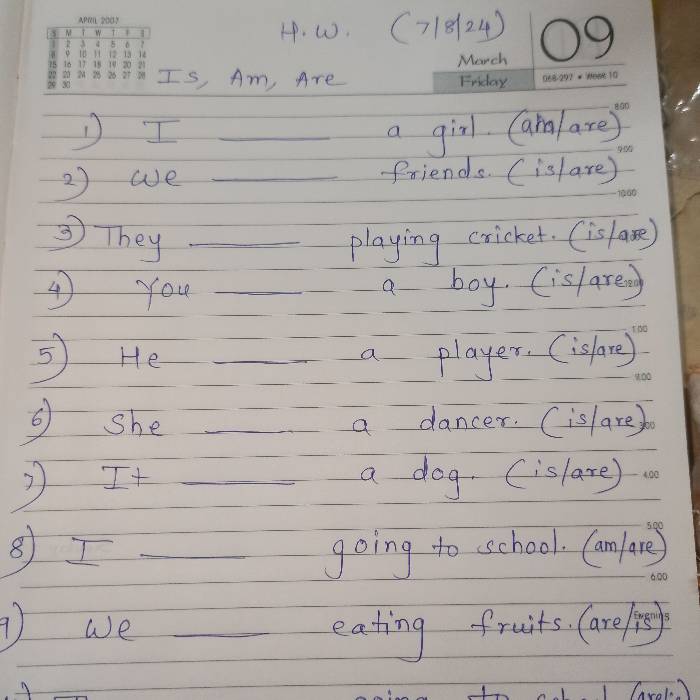 APRIL 2007
S M T W T F S
1 2 3 4 5 6 7
8 9 10 11 12 13 14
15 16 17 18 19 20 21
22 23 24 25 26 27 28
29 30
H.W. (7/8/24)
March
Friday
09
068-297 • Week 10
Is, Am, Are
8.00
1) I ______ a girl. (am/are)
9.00
2) We ______ friends. (is/are)
10.00
3) They ______ playing cricket. (is/are)
4) You ______ a boy. (is/are)
12.00
1.00
5) He ______ a player. (is/are)
6) She ______ a dancer. (is/are)
3.00
7) It ______ a dog. (is/are)
4.00
5.00
8) I ______ going to school. (am/are)
6.00
9) We ______ eating fruits. (are/is)
Evening
going to school